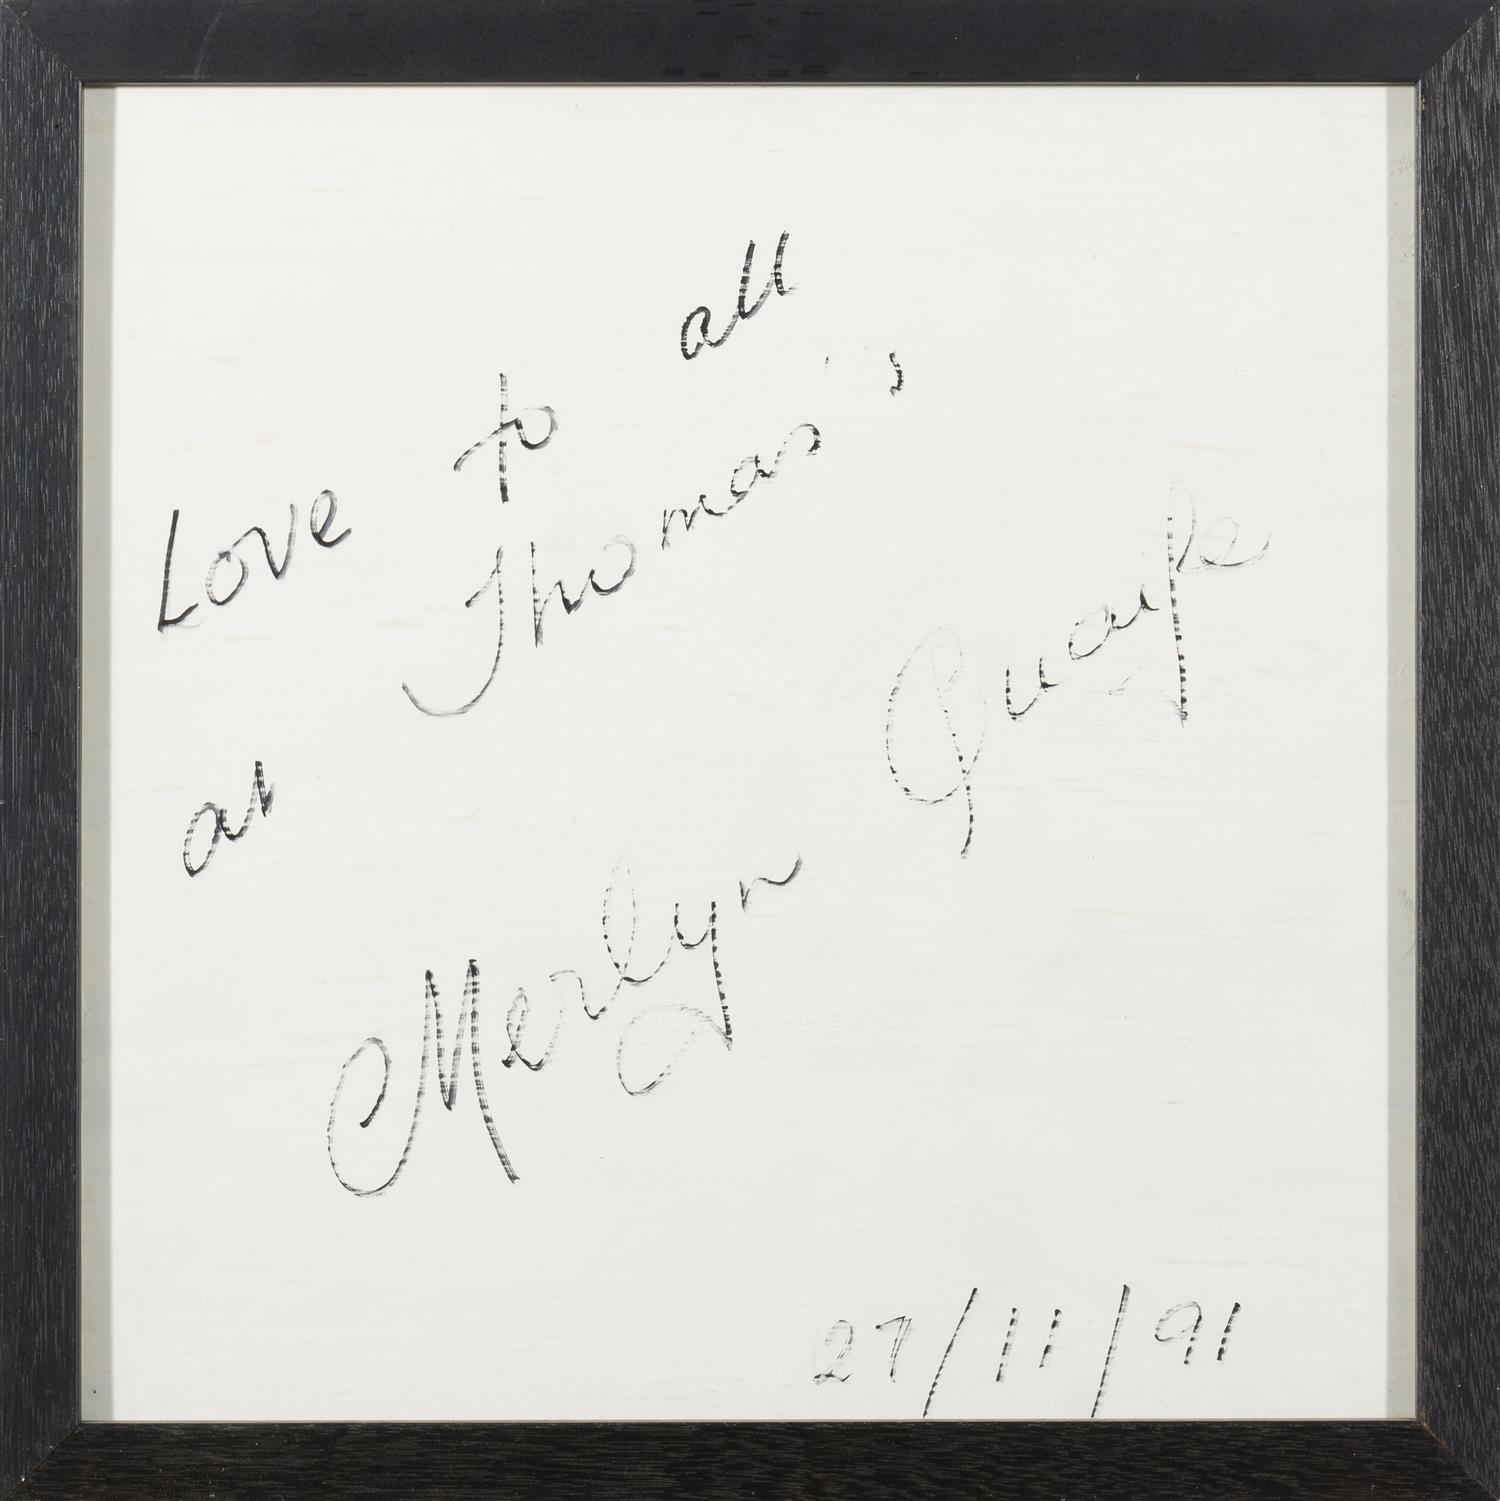 Love to all
at Thomas's
Merlyn Quaife
27/11/91